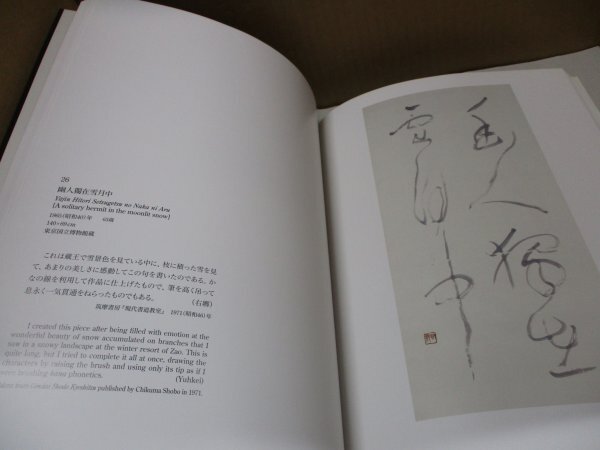 26
幽人獨在雪月中
Yujin Hitori Setsugetsu no Naka ni Aru
[A solitary hermit in the moonlit snow]
1965(昭和40)年 63歳
140×69cm
東京国立博物館蔵
これは蔵王で雪景色を見ている中に、枝に積った雪を見
て、あまりの美しさに感動してこの句を書いたのである。か
なの線を利用して作品に仕上げたもので、筆を高く吊って
息永く一気貫通をねらったものでもある。
(右卿)
筑摩書房『現代書道教室』 1971(昭和46)年
I created this piece after being filled with emotion at the
wonderful beauty of snow accumulated on branches that I
saw in a snowy landscape at the winter resort of Zao. This is
quite long, but I tried to complete it all at once, drawing the
characters by raising the brush and using only its tip as if I
were brushing kana phonetics.
(Yuhkei)
published by Chikuma Shobo in 1971.
幽人獨在
雪月中